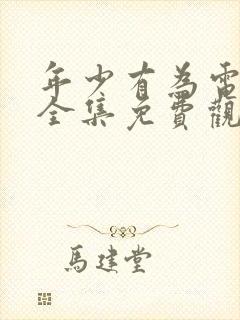 年少有為電
全集免費觀
馬建堂